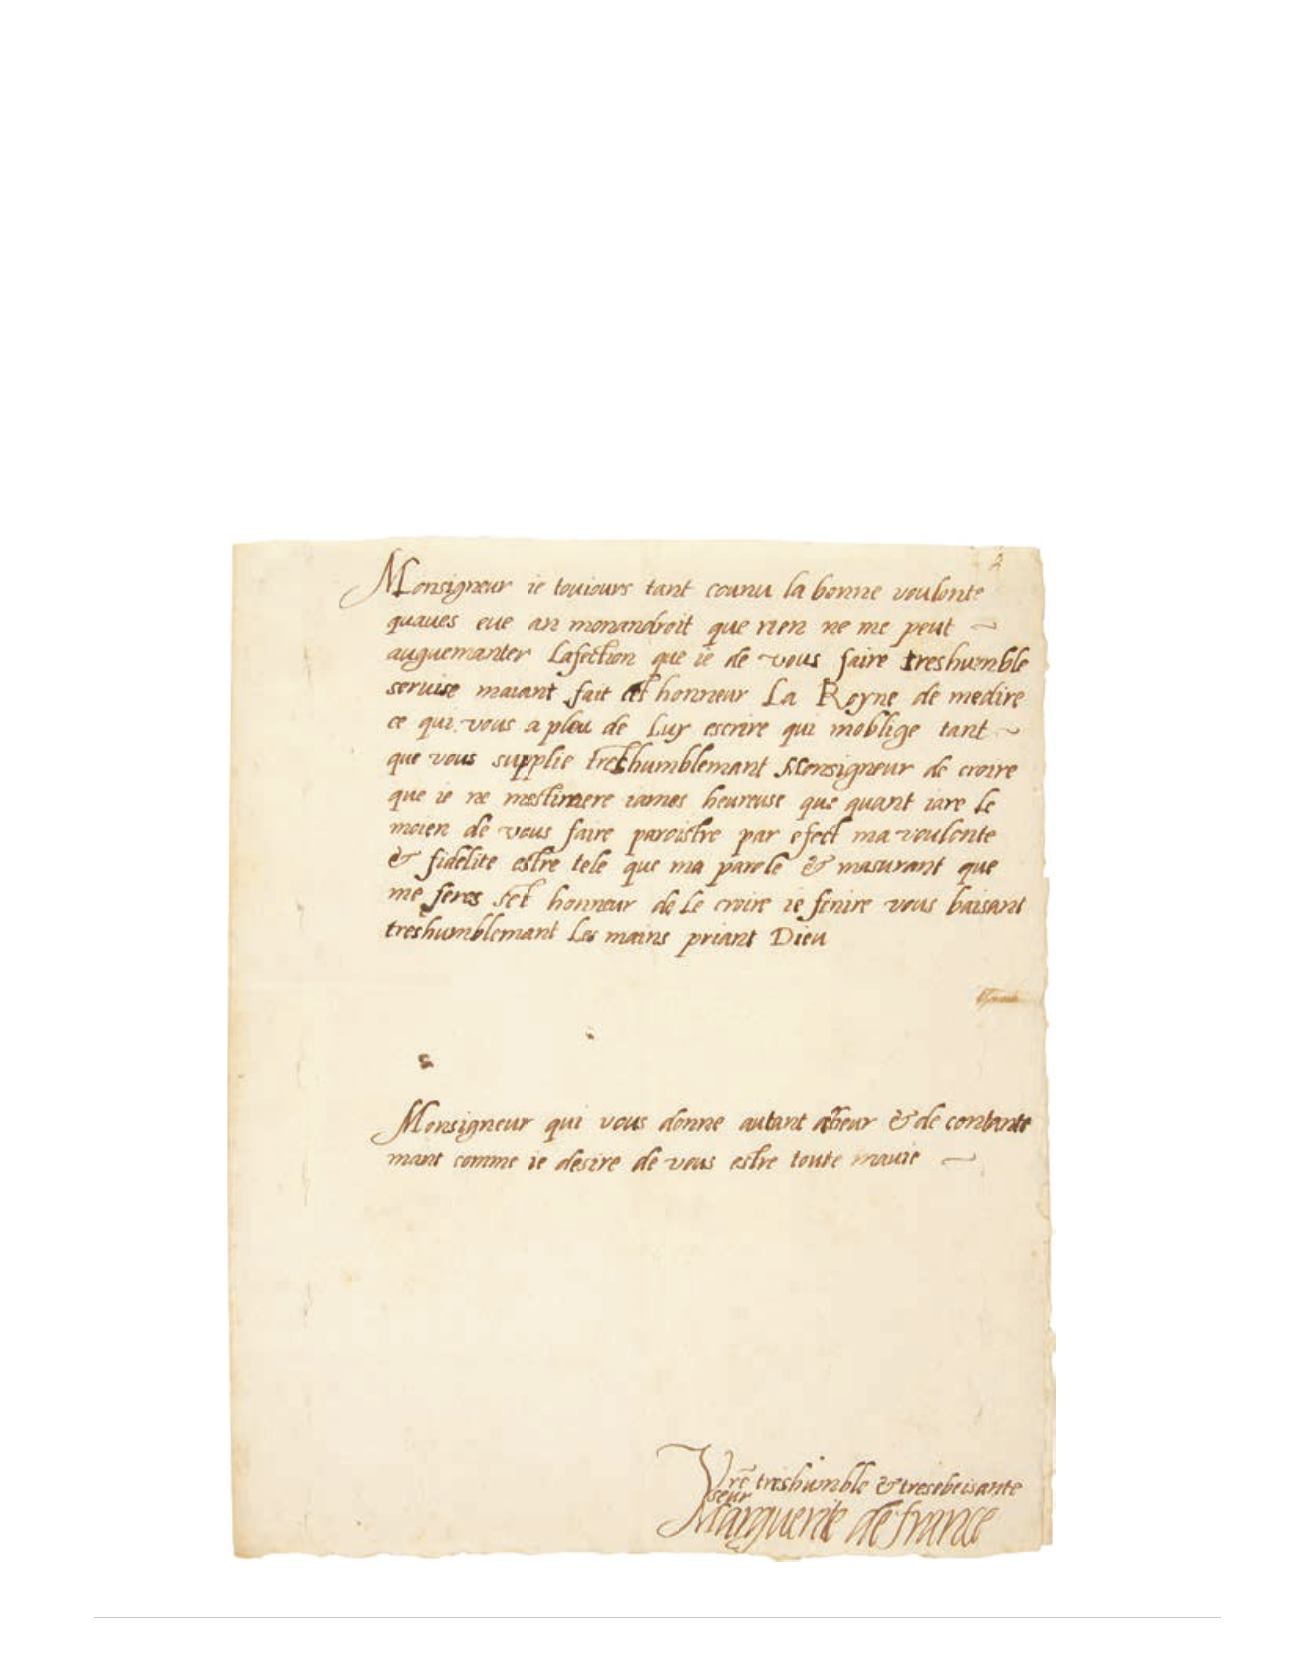 2
Monsigneur ie touiours tant counu la bonne voulonte
quaues eue an monandroit que rien ne me peut
auguemanter Lafection que ie de vous faire treshumble
seruise maiant fait cet honneur La Royne de medire
ce qui vous a pleu de Luy escrire qui moblige tant
que vous supplie treshumblemant Monsigneur de croire
que ie ne mestimere iames heureuse que quant iare le
moien de vous faire paroistre par efect ma voulonte
& fidelite estre tele que ma parole & masurant que
me feres set honneur de Le croire ie finire vous baisant
treshumblemant Les mains priant Dieu
Monsigneur qui vous donne autant & de contante
mant comme ie desire de vous estre toute mauie
Vre treshumble & tresobeisante
seur
Marguerite de france